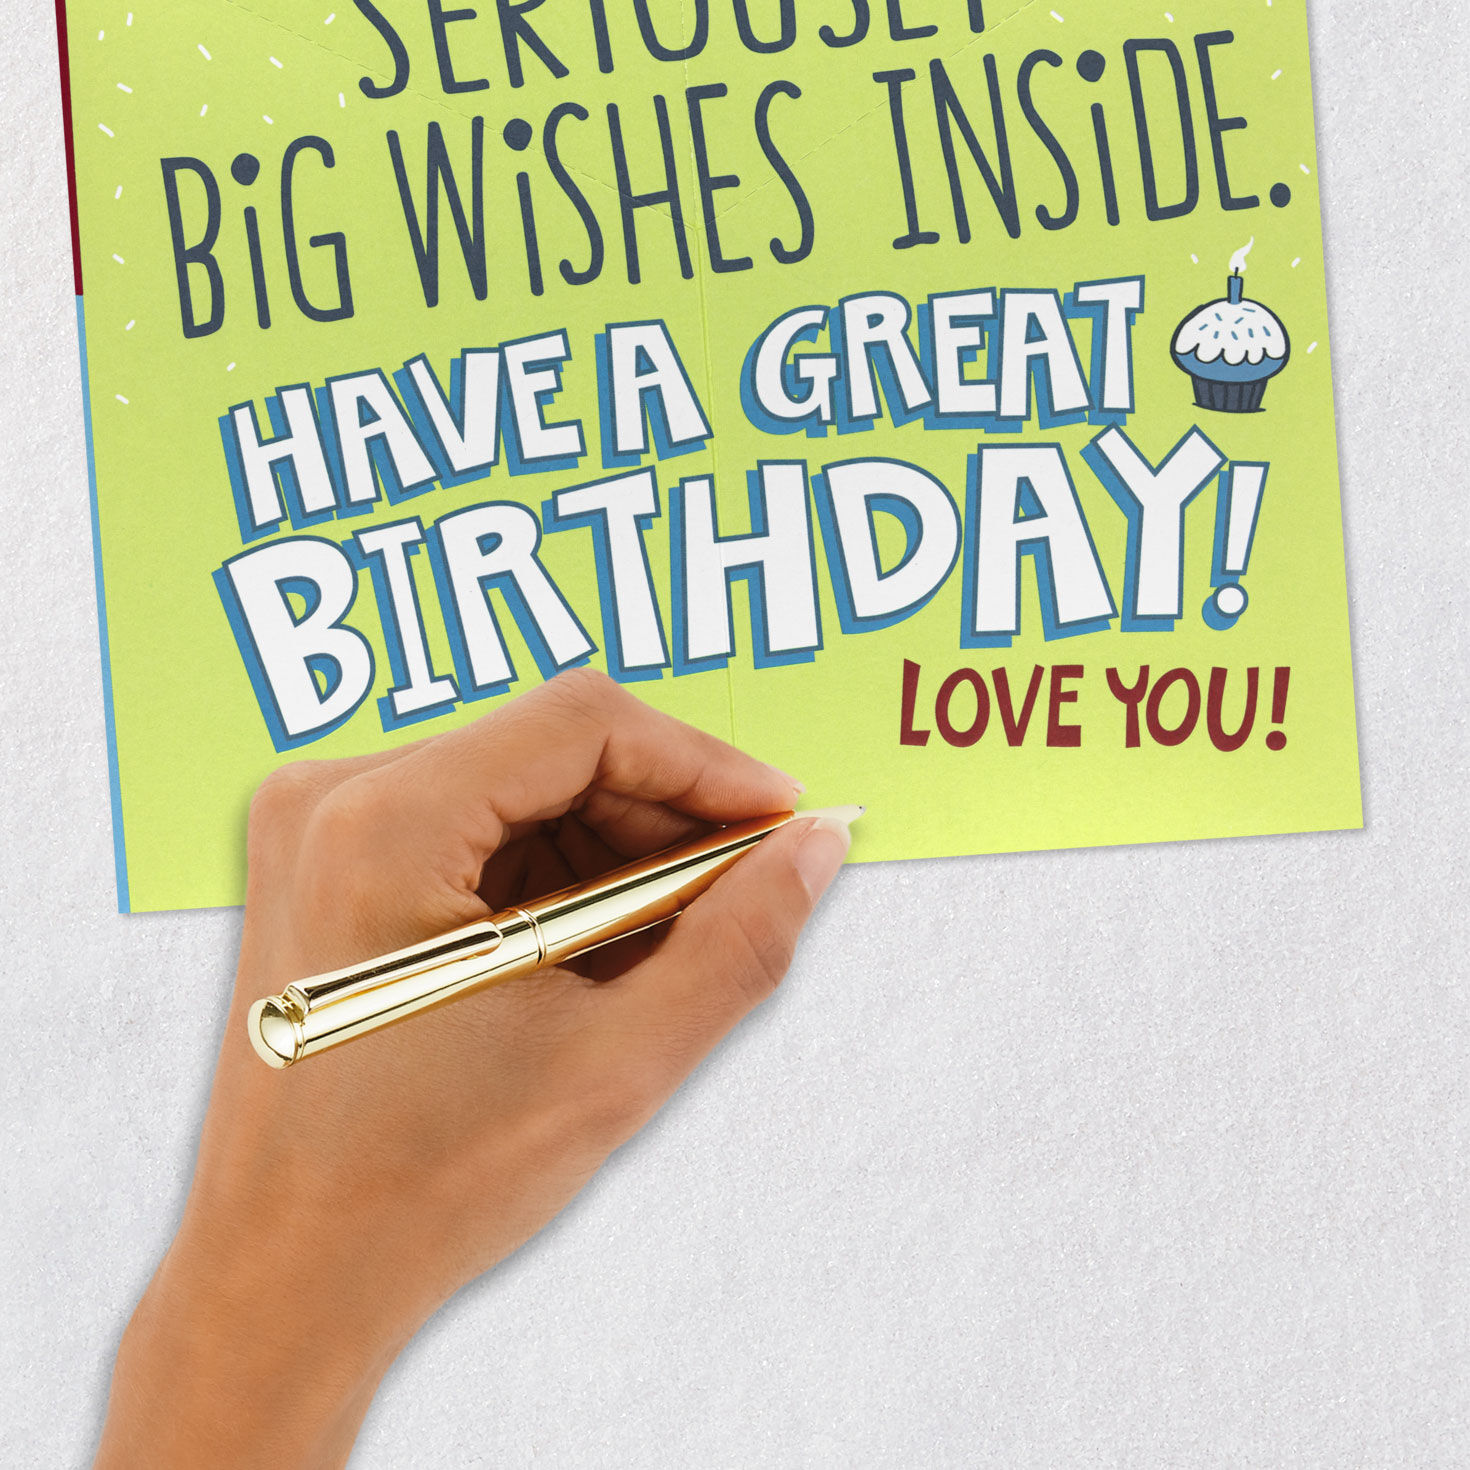 SERIOUSLY
BiG WiSHES INSiDE.
HAVE A GREAT
BIRTHDAY!
LOVE YOU!